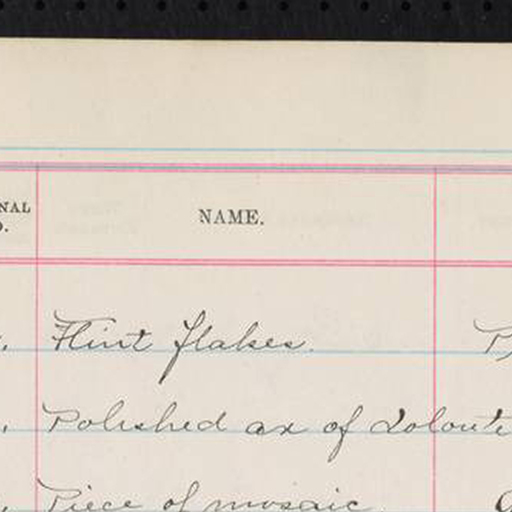 NAL
NAME.
Flint flakes.
Polished ax of
Piece of mosaic